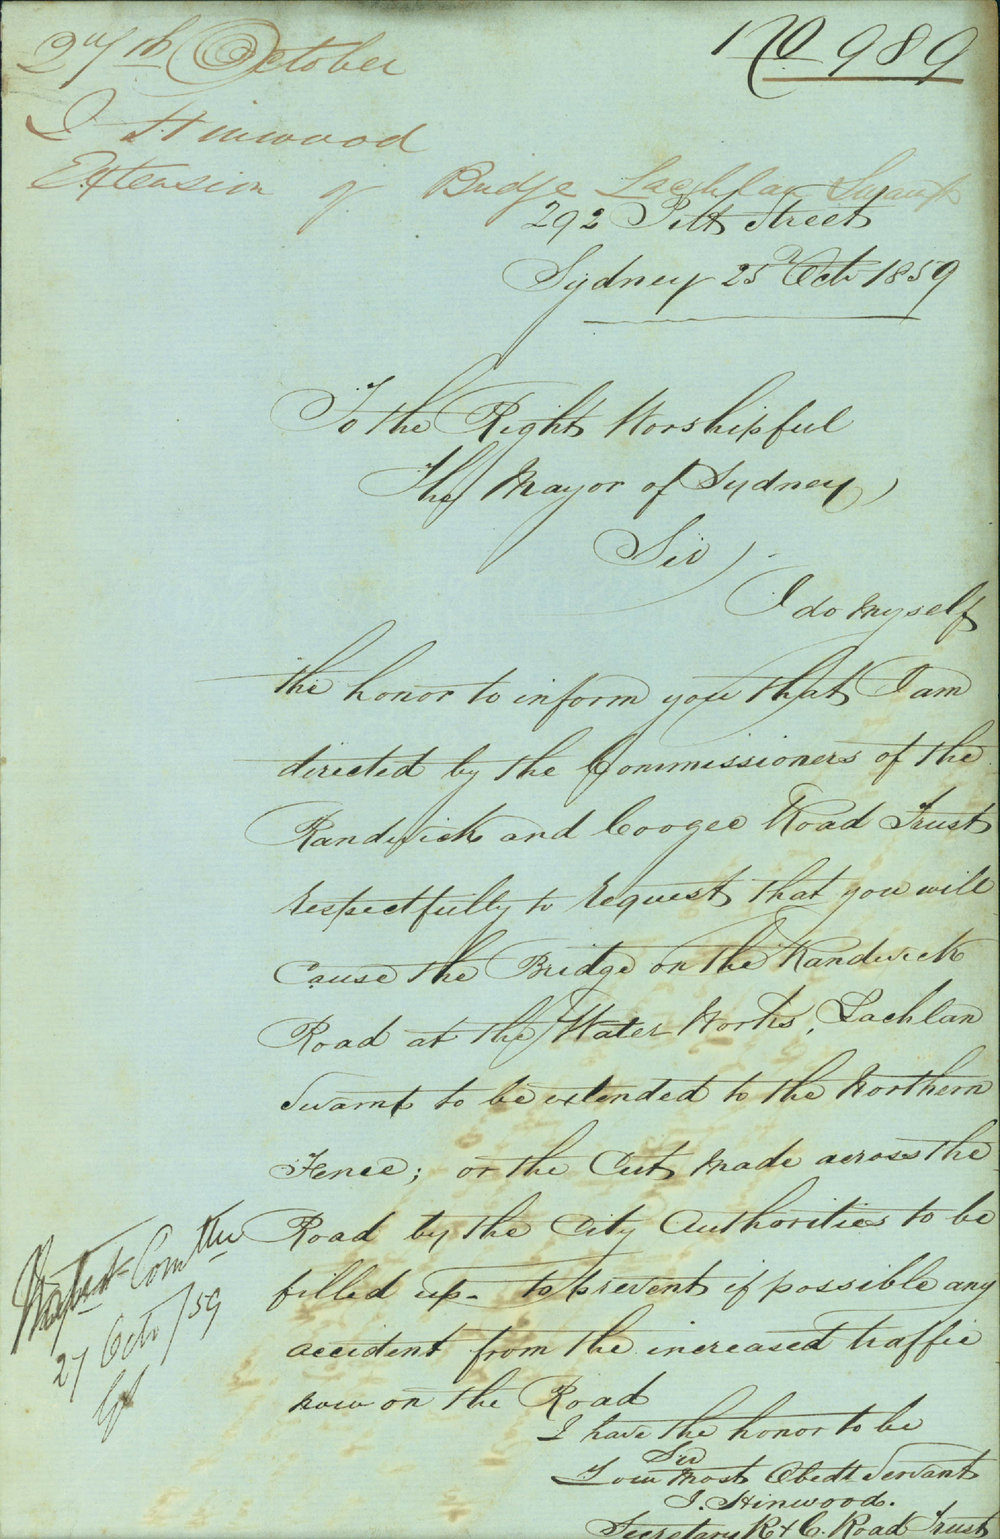 27th October
No 989
J Hinwood
Extension of Bridge Lachlan Swamp
292 Pitt Street
Sydney 25 Octr 1859
To the Right Worshipful
The Mayor of Sydney
Sir
I do myself
the honor to inform you that I am
directed by the Commissioners of the
Randwick and Coogee Road Trust
respectfully to request that you will
cause the Bridge on the Randwick
Road at the Water Works, Lachlan
Swamp to be extended to the Northern
Fence; or the Cut made across the
Road by the City Authorities to be
filled up - to prevent if possible any
accident from the increased traffic
now on the Road
I have the honor to be
Sir
Your Most Obedt Servant
J. Hinwood.
Secretary R & C. Road Trust
Comttee
27 Octr /59